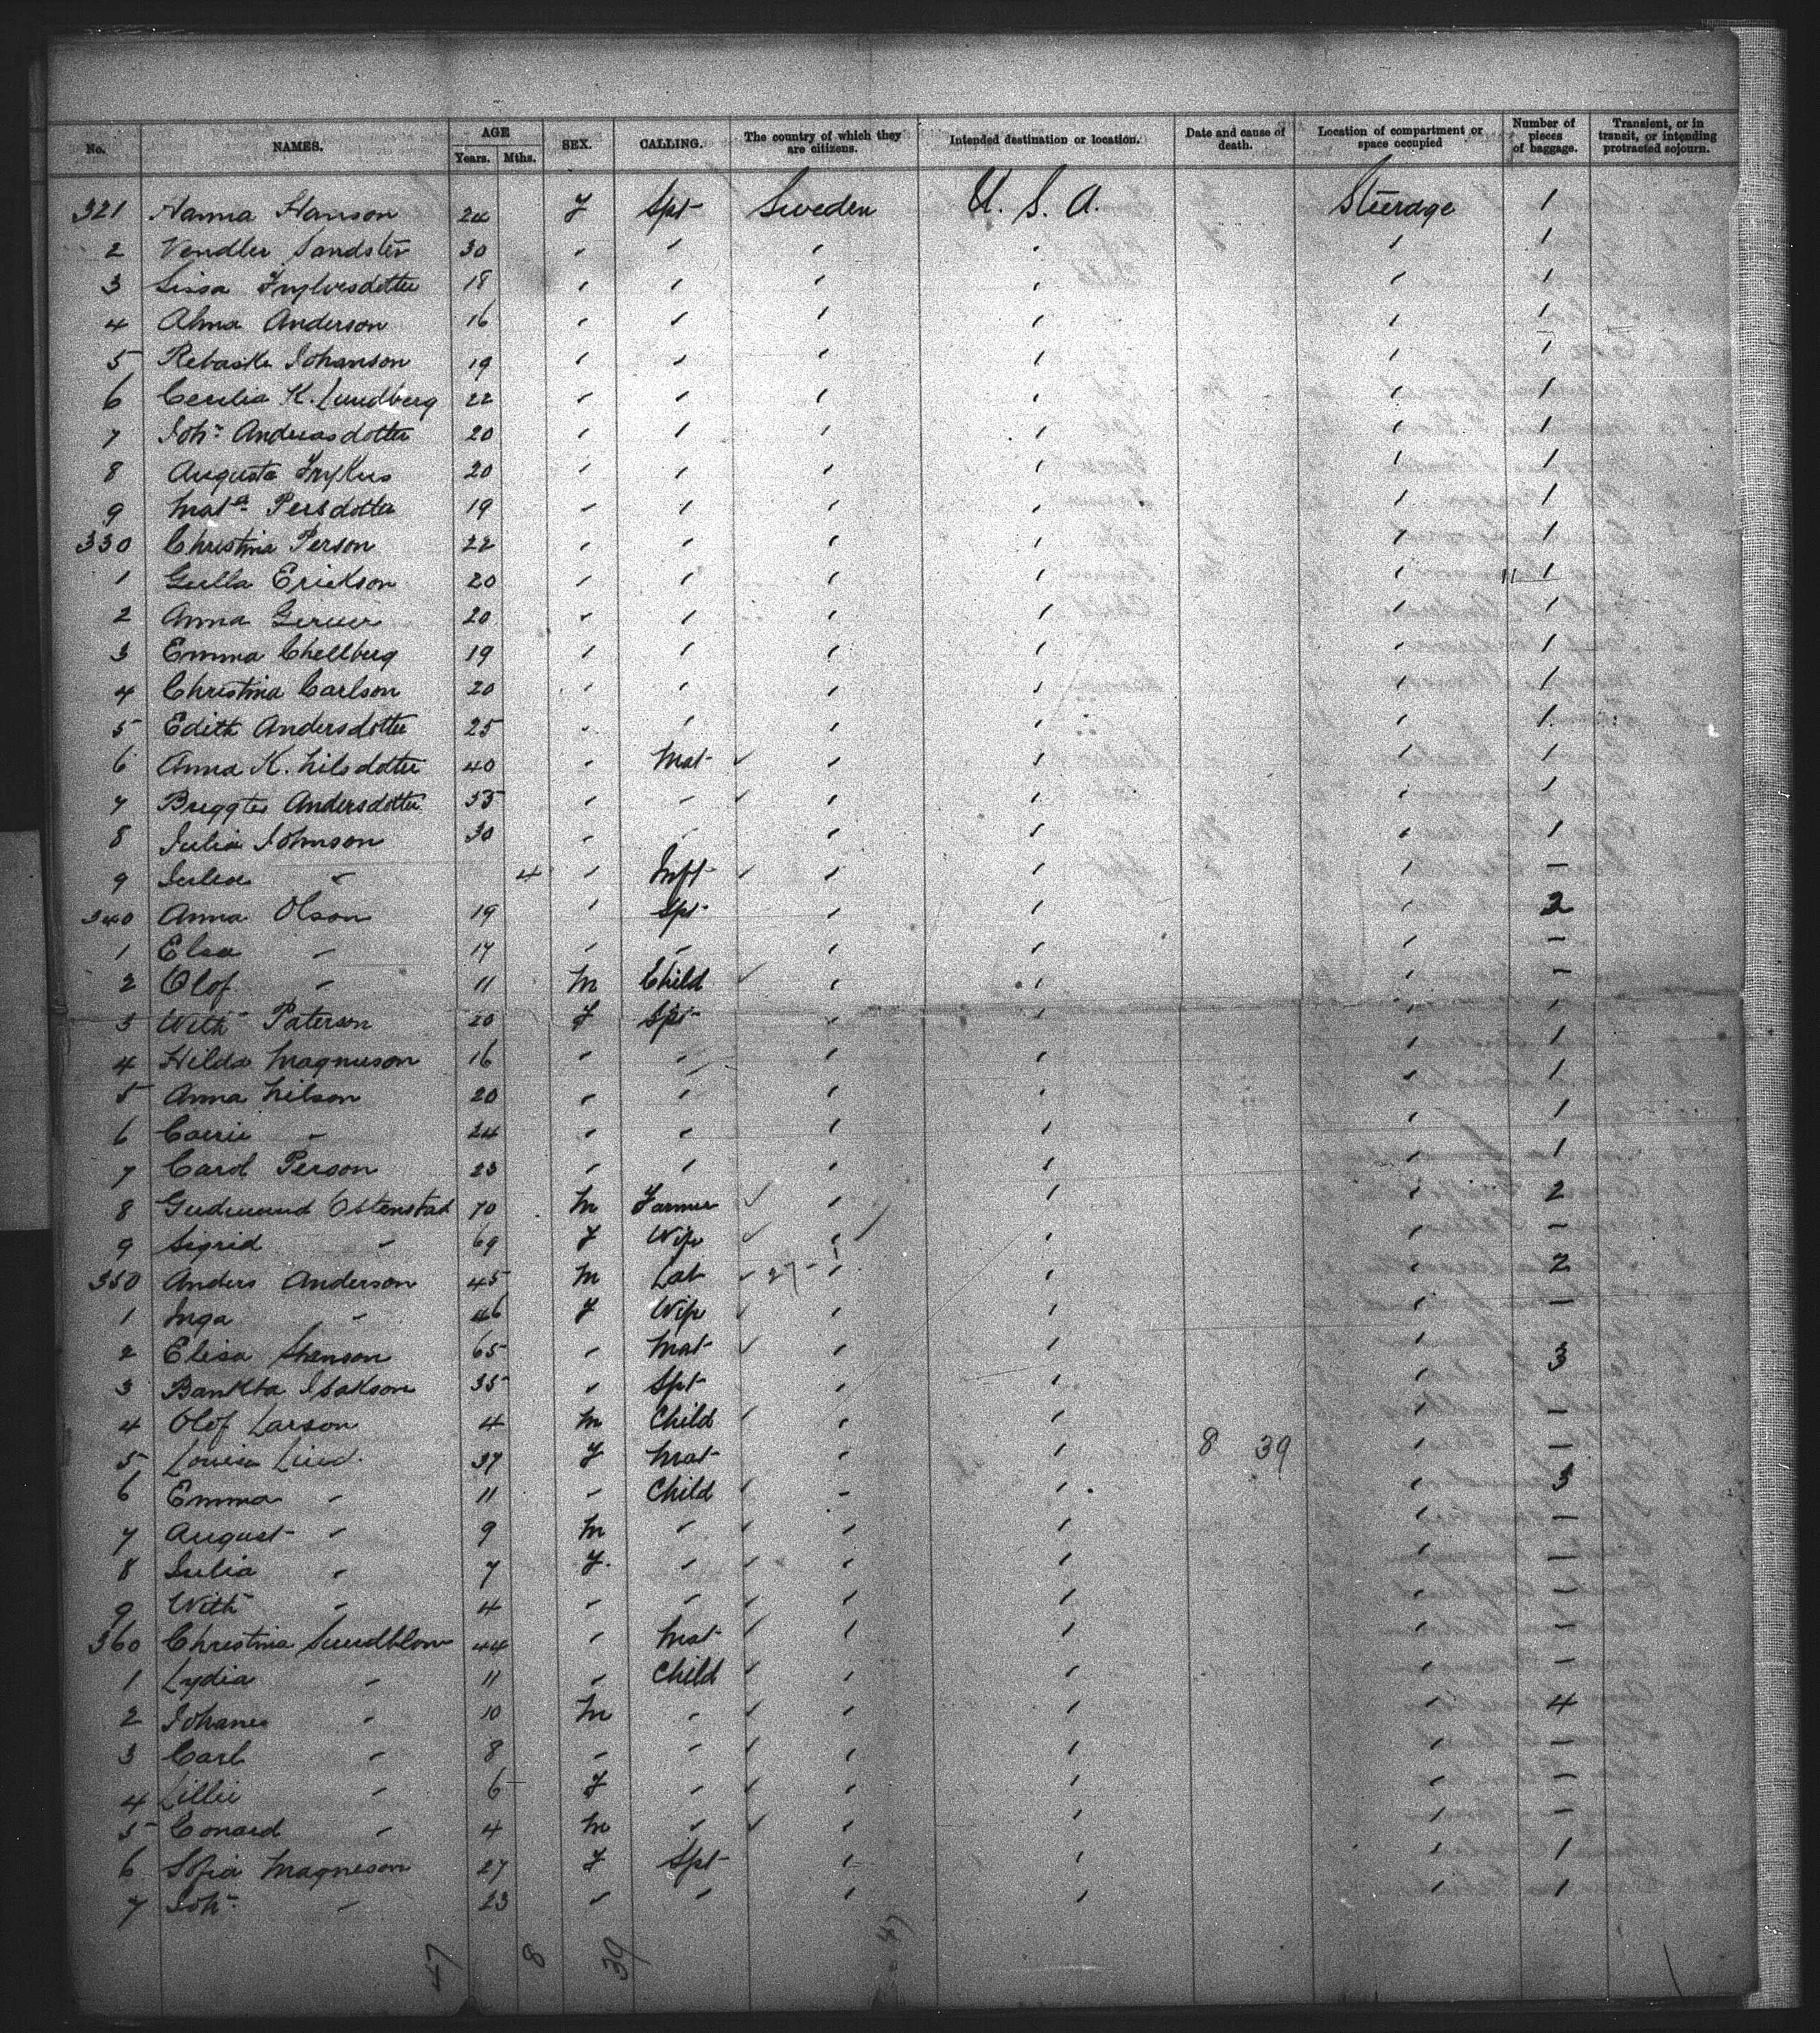 No. NAMES. AGE Years. Mths. SEX. CALLING. The country of which they are citizens. Intended destination or location. Date and cause of death. Location of compartment or space occupied Number of pieces of baggage. Transient, or in transit, or intending protracted sojourn.
321 Nanna Hanson 24 F Spt Sweden U. S. A. Steerage 1
2 Vendler Sandster 30 " " " " " 1
3 Sissa 18 " " " " " 1
4 Alma Anderson 16 " " " " " 1
5 Johanson 19 " " " " " 1
6 Cecilia K. Lundberg 22 " " " " " 1
7 Joh. Andreasdotter 20 " " " " " 1
8 Augusta Frykus 20 " " " " " 1
9 Mata Persdotter 19 " " " " " 1
330 Christina Person 22 " " " " " 1
1 Gulla Erickson 20 " " " " " 11 1
2 Anna 20 " " " " " 1
3 Emma Chellberg 19 " " " " " 1
4 Christina Carlson 20 " " " " " 1
5 Edith Andersdotter 25 " " " " " 1
6 Anna K. Nilsdotter 40 " Mat " " " 1
7 Andersdotter 55 " " " " " 1
8 Julia Johnson 30 " " " " " 1
9 Julia " 4 " Inft " " " -
340 Anna Olson 19 " Spt " " " 2
1 Elsa " 17 " " " " " -
2 Olof " 11 M Child " " " -
3 With Paterson 20 F Spt " " " 1
4 Hilda Magnuson 16 " " " " " 1
5 Anna Nilson 20 " " " " " 1
6 Carrie " 24 " " " " " 1
7 Carol Person 23 " " " " " 1
8 Gudmund Ostenstad 70 M Farmer " " " 2
9 Sigrid " 69 F Wife " " " -
350 Anders Anderson 45 M Lab 27 " " " 2
1 Inga " 46 F Wife " " " -
2 Elisa Shenson 65 " Mat " " " 3
3 Bankta Isakson 35 " Spt " " "
4 Olof Larson 4 M Child " " " -
5 Louisa Lind 37 F Mat " " 8 39 " -
6 Emma " 11 " Child " " " 3
7 August " 9 M " " " " -
8 Julia " 7 F " " " " -
9 With " 4 " " " " " -
360 Christina Sundblom 44 " Mat " " " -
1 Lydia " 11 " Child " " " -
2 Johanes " 10 M " " " " 4
3 Carl " 8 " " " " " -
4 Lillie " 6 F " " " " -
5 Conard " 4 M " " " " -
6 Sofia Magneson 27 F Spt " " " 1
7 Joh. " 23 " " " " " 1
47 8 39 47